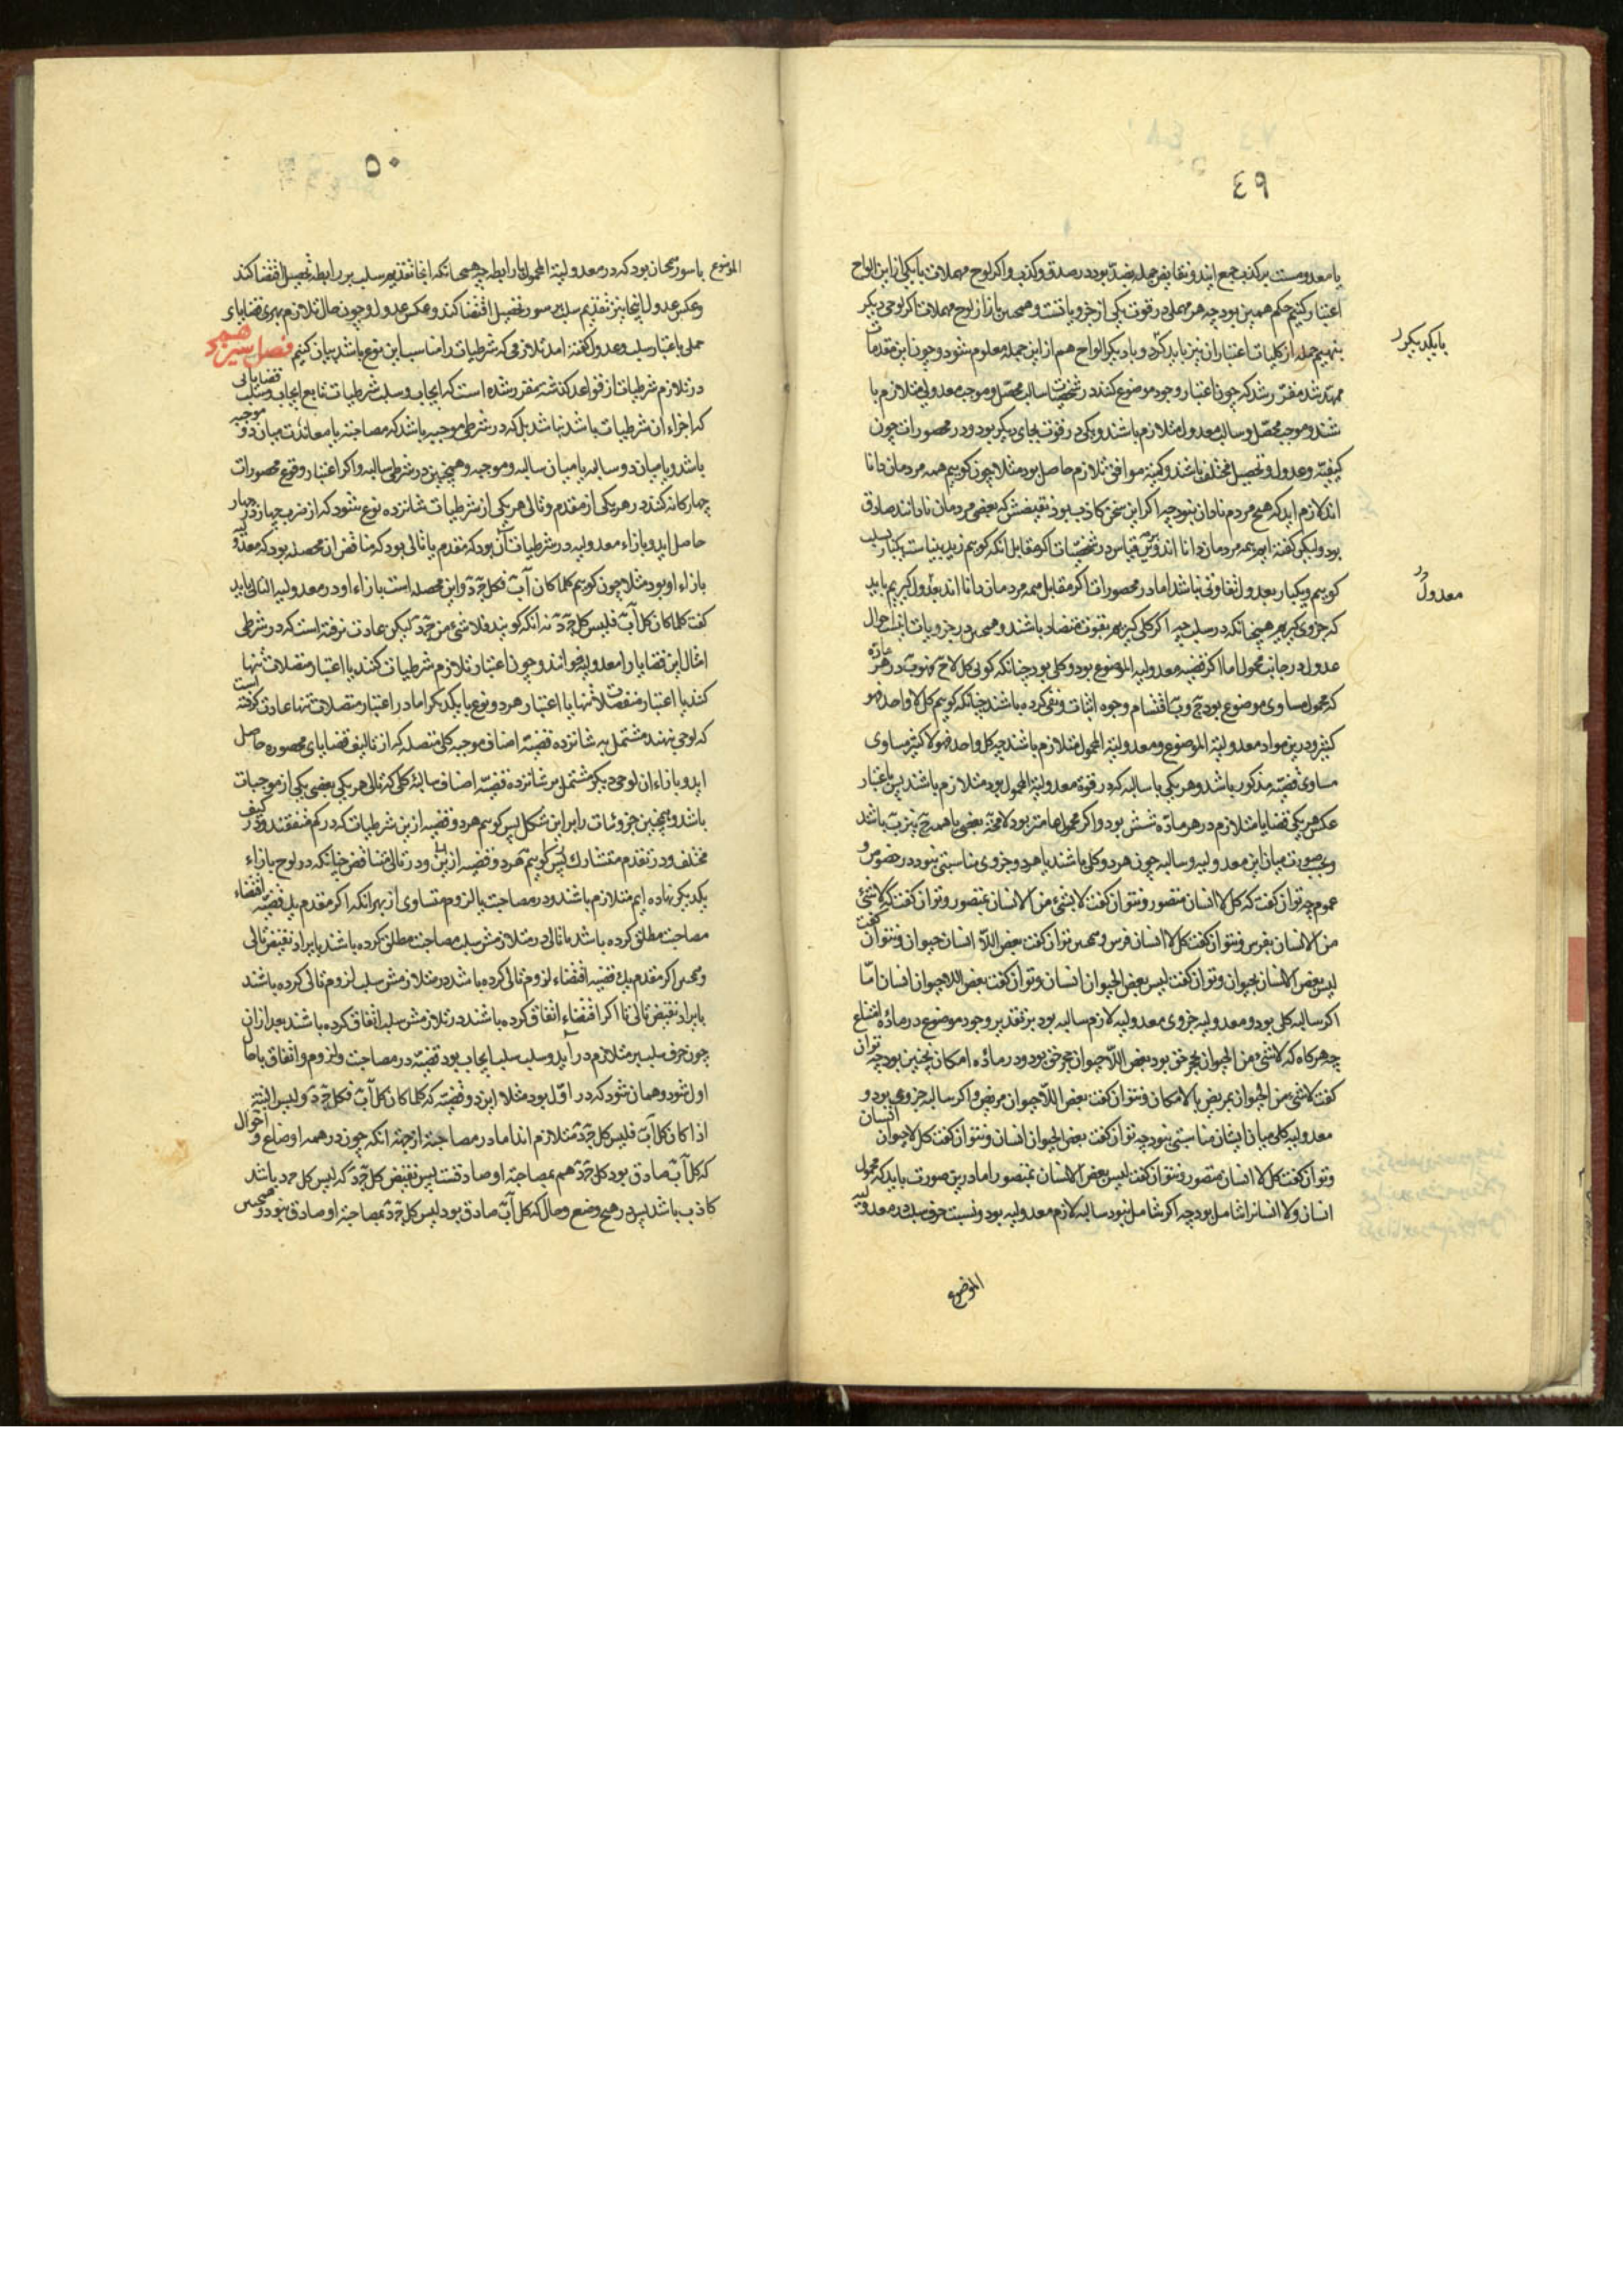 ٤٩
اعتبار کنیم حکم همین بود چه هر مهملی در قوت یکی از جزویاتست و همچنین باز از لوح مهملات اگر لوحی دیگر
بنهیم جمله از کلیات اعتبار آن نیز باید کرد و با دیگر الواح هم از این جمله معلوم شود و چون این مقدمات
ممهد شد مقرر شد که چون اعتبار وجود موضوع کنند در شخصیات سالبه محصل و موجبه معدولی متلازم با
شند و موجبه محصل و سالبه معدوله متلازم باشند و یکی در قوت بجای دیگر بود و در محصورات چون
کیفیة و عدول و تحصیل مختلف باشند و کمیة موافق تلازم حاصل بود مثلا چون گوییم همه مردمان دانا
اند لازم آید که هیچ مردم نادان نبود چه اگر این سخن کاذب بود نقیضش که بعضی مردمان نادانند صادق
بود ولیکن گفته ایم همه مردمان دانا اند و قیاس در شخصیات اگر مقابل آنکه گوییم زید بیناست یکبار بسلب
گوییم و یکبار بعدول تفاوتی نباشد اما در محصورات اگر مقابل همه مردمان دانا اند بعدول گیریم باید
که جزوی گیریم همچنانکه در سلب چه اگر کلی گیریم بقوت متضاد باشند و همچنین در جزویات اینست احوال
عدول در جانب محمول اما اگر قضیه معدولیه الموضوع بود و کلی بود چنانکه گویی کل لا ج ب در هر ماده
که محمول مساوی موضوع بود
کثیر و درین مواد معدولیة الموضوع و معدولیة المحمول متلازم باشند چه کل واحد فهو لا کثیر مساوی
مساوی قضیه مذکور باشد و هر یکی با سالبه که در قوة معدولیة المحمول بود متلازم باشند پس باعتبار
عکس هر یکی قضایا متلازم در هر ماده شش بود و اگر محمول عامتر بود
و بعضی صورت میان این معدولیه و سالبه چون هر دو کلی باشند یا هر دو جزوی مناسبتی نبود در خصوص و
عموم چه توان گفت که کل لا انسان متصور و نتوان گفت لا شیء من الانسان بمتصور و توان گفت که لا شیء
من الانسان بفرس و نتوان گفت کل لا انسان فرس و همچنین توان گفت بعض اللا انسان حیوان و نتوان گفت
لیس بعض الانسان بحیوان و توان گفت لیس بعض الحیوان انسان و نتوان گفت بعض اللا حیوان انسان اما
اگر سالبه کلی بود و معدولیه جزوی معدولیه لازم سالبه بود بر تقدیر وجود موضوع در ماده امتناع
چه هرگاه که لا شیء من الحیوان بحجر حق بود بعض اللا حیوان حجر حق بود و در ماده امکان نچنین بود چه توان
گفت لا شیء من الحیوان بمریض بالامکان و نتوان گفت بعض اللا حیوان مریض و اگر سالبه جزوی بود و
معدولیه کلی میان ایشان مناسبتی نبود چه توان گفت بعض الحیوان انسان و نتوان گفت کل لا حیوان انسان
و توان گفت کل لا انسان متصور و نتوان گفت لیس بعض الانسان بمتصور اما درین صورت باید که محمول
انسان و لا انسان را شامل بود چه اگر شامل نبود سالبه لازم معدولیه بود و نسبت حرف سلب در معدولیة
الموضوع
با یکدیگر
معدول
٥٠
الموضوع با سور همچنان بود که در معدولیة المحمول با رابطه چه همچنانکه آنجا تقدیم سلب بر رابطه تحصیل اقتضا کند
و عکس عدول اینجا نیز تقدیم سلب بر سور تحصیل اقتضا کند و عکس عدول و چون حال تلازم بهری قضایای
حملی باعتبار سلب و عدول گفته آمد تلازمی که شرطیات را مناسب این نوع باشد بیان کنیم فصل سیزدهم
در تلازم شرطیات از قواعد گذشته مقرر شده است که ایجاب و سلب شرطیات تابع ایجاب و سلب قضایائی
که اجزاء آن شرطیات باشد نباشد بل که در شرطی موجبه باشد که مصاحبة یا معاندت میان دو موجبه
باشد و یا میان دو سالبه یا میان سالبه و موجبه و همچنین در شرطی سالبه و اگر اعتبار وقوع محصورات
چهارگانه کنند در هر یکی از مقدم و تالی هر یکی از شرطیات شانزده نوع شود که از ضرب چهار در چهار
حاصل آید و بازاء معدولیه در شرطیات آن بود که مقدم یا تالی بود که مناقض آن محصله بود که معدولیه
بازاء او بود مثلا چون گوییم کلما کان آب فکل ج د و این محصله است بازاء او در معدولیه التالی باید
گفت کلما کان کل آب فلیس کل ج د نه آنکه گویند فلا شیء من ج د لیکن عادت نرفته است که در شرطی
امثال این قضایا را معدولیه خوانند و چون اعتبار تلازم شرطیات کنند یا اعتبار متصلات تنها
کنند یا اعتبار منفصلات تنها یا اعتبار هر دو نوع با یکدیگر اما در اعتبار متصلات تنها عادت گرفته است
که لوحی نهند مشتمل به شانزده قضیه اصناف موجبه کلی متصله که از تالیف قضایای محصوره حاصل
آید و بازاء آن لوحی دیگر مشتمل بر شانزده قضیه اصناف سالبه کلی که تالی هر یکی نقیض یکی از موجبات
باشد و همچنین جزویات را بر این شکل پس گوییم هر دو قضیه ازین شرطیات که در کم متفقند و در کیف
مختلف و در مقدم متشارک و در تالی متناقض چنانکه در لوح بازاء
یکدیگر نهاده ایم متلازم باشند و در مصاحبت یا لزوم متساوی از بهر آنکه اگر مقدم یک قضیه اقتضاء
مصاحبت مطلق کرده باشد با تالی در متلازمش سلب مصاحبت مطلق کرده باشند با یراد نقیض تالی
و همچنین اگر مقدم یک قضیه اقتضاء لزوم تالی کرده باشد در متلازمش سلب لزوم تالی کرده باشند
با یراد نقیض تالی تا اگر اقتضاء اتفاق کرده باشند در تلازمش سلب اتفاق کرده باشند بعد از آن
چون حرف سلب بر متلازم در آید و سلب سلب ایجاب بود قضیه در مصاحبت و لزوم و اتفاق با حال
اول شود و همان شود که در اول بود مثلا این دو قضیه که کلما کان کل آب فکل ج د و لیس البتة
اذا کان کل آب فلیس کل ج د متلازم اند اما در مصاحبة از جهة آنکه چون در همه اوضاع و احوال
که کل آب صادق بود کل ج د هم بمصاحبة او صادقست پس نقیض کل ج د که لیس کل ج د باشد
کاذب باشد پس در هیچ وضع و حال که کل آب صادق بود لیس کل ج د بمصاحبة او صادق نبود و همچنین